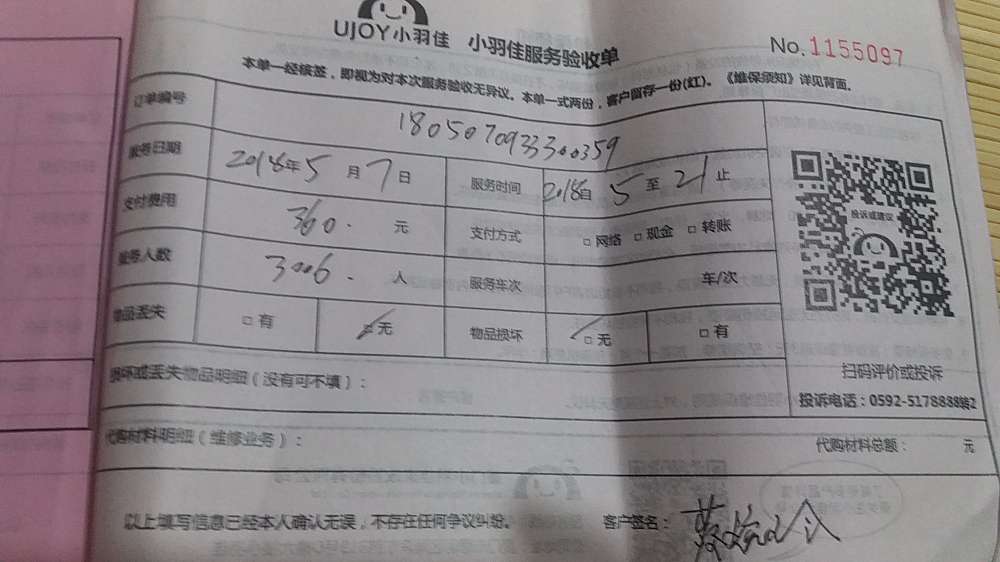 UJOY小羽佳 小羽佳服务验收单
No.1155097
本单一经核签，即视为对本次服务验收无异议。本单一式两份，客户留存一份(红)。《维保须知》详见背面。
订单编号 18050709333300359
服务日期 2018年5月7日 服务时间 2018自5至21止
支付费用 360. 元 支付方式 □网络 □现金 □转账
服务人数 3006. 人 服务车次 车/次
物品丢失 □有 □无 物品损坏 □无 □有
投诉或建议
扫码评价或投诉
损坏或丢失物品明细（没有可不填）：
投诉电话：0592-5178888转2
代购材料明细（维修业务）： 代购材料总额： 元
以上填写信息已经本人确认无误，不存在任何争议纠纷。 客户签名：